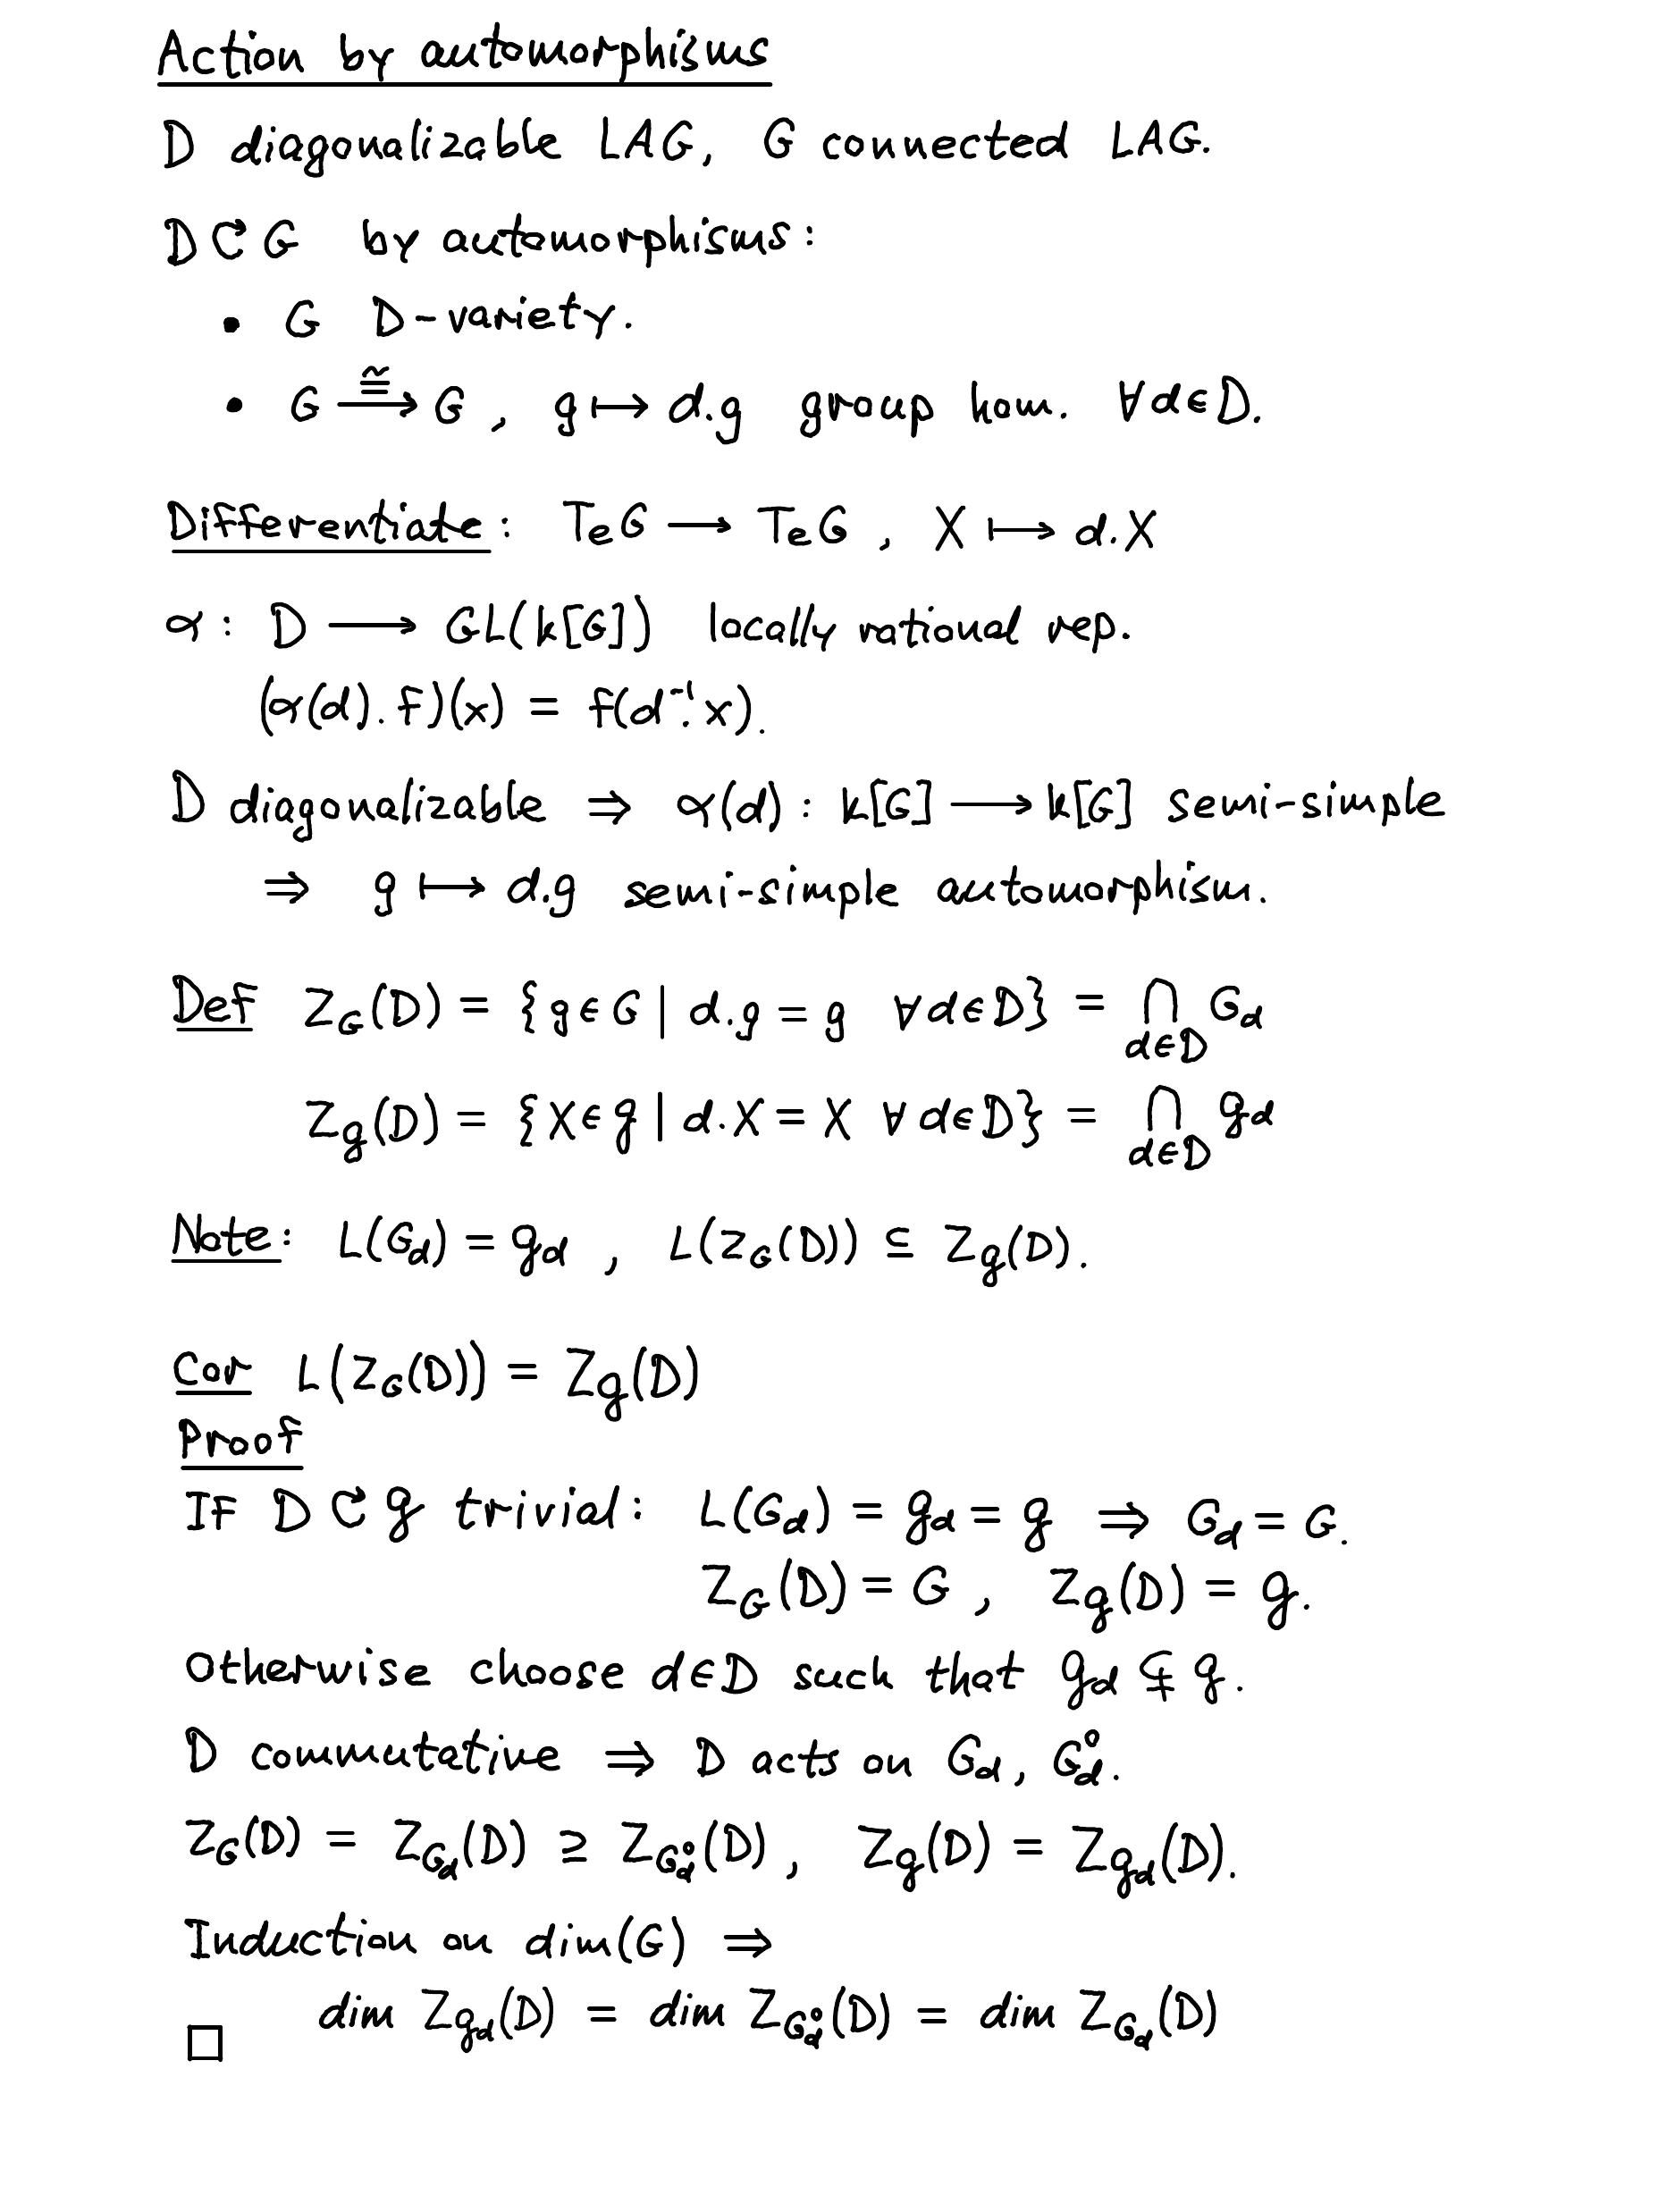 Action by automorphisms
D diagonalizable LAG, G connected LAG.
D ⟳ G by automorphisms:
• G D-variety.
• G ≅⟶ G, g ⟼ d.g group hom. ∀d∈D.
Differentiate: TeG ⟶ TeG, X ⟼ d.X
α: D ⟶ GL(k[G]) locally rational rep.
(α(d).f)(x) = f(d⁻¹.x).
D diagonalizable ⇒ α(d): k[G] ⟶ k[G] semi-simple
⇒ g ⟼ d.g semi-simple automorphism.
Def Z_G(D) = {g∈G | d.g = g ∀d∈D} = ⋂_{d∈D} G_d
Z_g(D) = {X∈g | d.X = X ∀d∈D} = ⋂_{d∈D} g_d
Note: L(G_d) = g_d, L(Z_G(D)) ⊆ Z_g(D).
Cor L(Z_G(D)) = Z_g(D)
Proof
If D ⟳ g trivial: L(G_d) = g_d = g ⇒ G_d = G.
Z_G(D) = G, Z_g(D) = g.
Otherwise choose d∈D such that g_d ⊊ g.
D commutative ⇒ D acts on G_d, G_d°.
Z_G(D) = Z_{G_d}(D) ⊇ Z_{G_d°}(D), Z_g(D) = Z_{g_d}(D).
Induction on dim(G) ⇒
dim Z_{g_d}(D) = dim Z_{G_d°}(D) = dim Z_{G_d}(D)
□